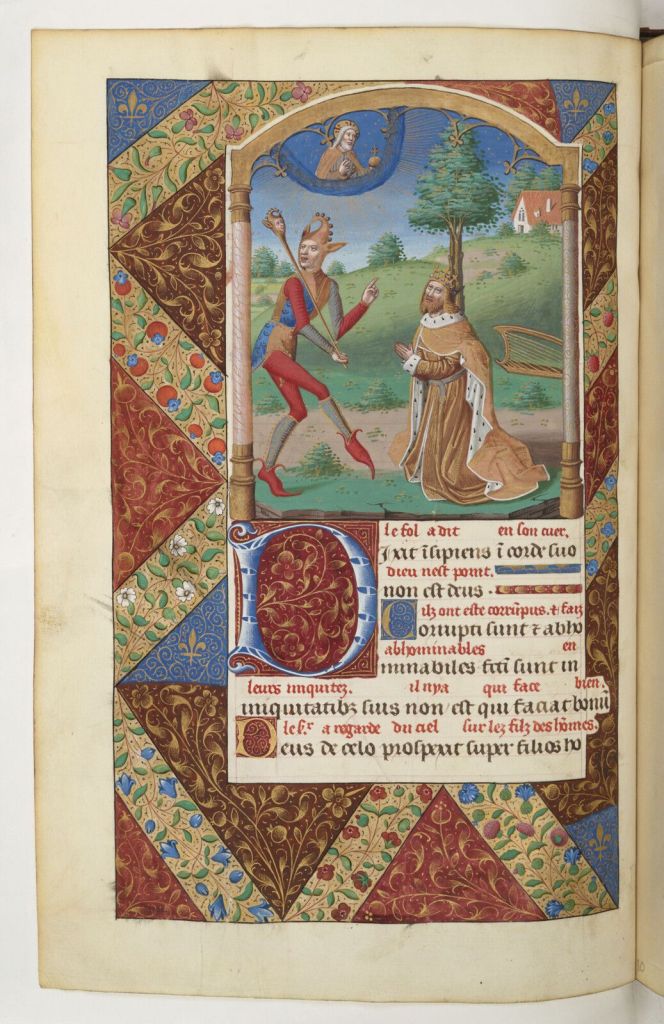 le fol a dit en son cuer.
Dixit ĩsipiens ĩ corde suo
dieu nest point.
non est deus.
ilz ont este corrũpus. & faiz
Corrupti sunt & abho
abhominables en
minabiles fcti sunt in
leurs iniquitez. il nya qui face bien.
iniquitatibz suis non est qui faciat bonũ
le sr a regarde du ciel sur lez filz des hõmes.
Deus de celo prospexit super filios ho